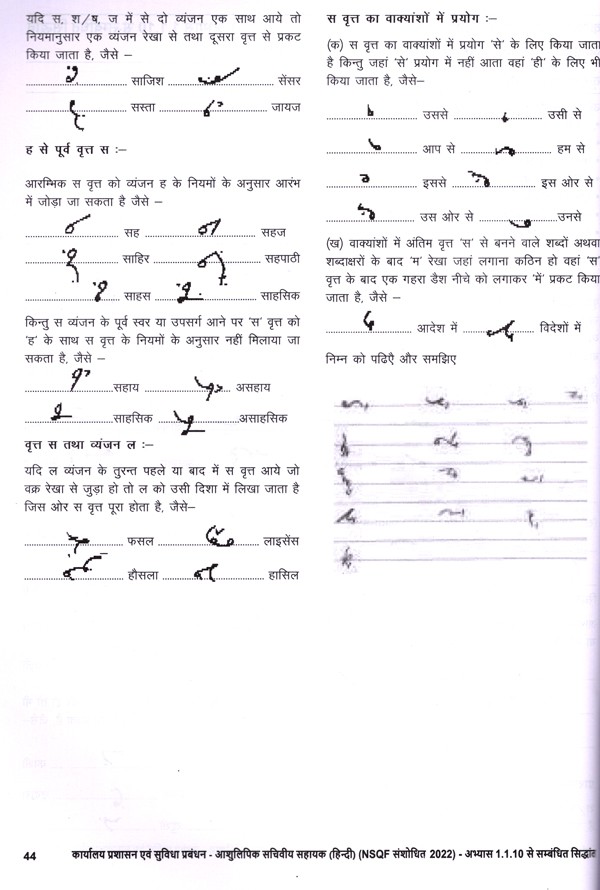 यदि स, श/ष, ज में से दो व्यंजन एक साथ आये तो
नियमानुसार एक व्यंजन रेखा से तथा दूसरा वृत्त से प्रकट
किया जाता है, जैसे –
साजिश सेंसर
सस्ता जायज
ह से पूर्व वृत्त स :–
आरम्भिक स वृत्त को व्यंजन ह के नियमों के अनुसार आरंभ
में जोड़ा जा सकता है जैसे –
सह सहज
साहिर सहपाठी
साहस साहसिक
किन्तु स व्यंजन के पूर्व स्वर या उपसर्ग आने पर 'स' वृत्त को
'ह' के साथ स वृत्त के नियमों के अनुसार नहीं मिलाया जा
सकता है, जैसे –
सहाय असहाय
साहसिक असाहसिक
वृत्त स तथा व्यंजन ल :–
यदि ल व्यंजन के तुरन्त पहले या बाद में स वृत्त आये जो
वक्र रेखा से जुड़ा हो तो ल को उसी दिशा में लिखा जाता है
जिस ओर स वृत्त पूरा होता है, जैसे–
फसल लाइसेंस
हौसला हासिल
स वृत्त का वाक्यांशों में प्रयोग :–
(क) स वृत्त का वाक्यांशों में प्रयोग 'से' के लिए किया जाता
है किन्तु जहां 'से' प्रयोग में नहीं आता वहां 'ही' के लिए भी
किया जाता है, जैसे–
उससे उसी से
आप से हम से
इससे इस ओर से
उस ओर से उनसे
(ख) वाक्यांशों में अंतिम वृत्त 'स' से बनने वाले शब्दों अथवा
शब्दाक्षरों के बाद 'म' रेखा जहां लगाना कठिन हो वहां 'स'
वृत्त के बाद एक गहरा डैश नीचे को लगाकर 'में' प्रकट किया
जाता है, जैसे –
आदेश में विदेशों में
निम्न को पढिएै और समझिए
44 कार्यालय प्रशासन एवं सुविधा प्रबंधन - आशुलिपिक सचिवीय सहायक (हिन्दी) (NSQF संशोधित 2022) - अभ्यास 1.1.10 से सम्बंधित सिद्धांत